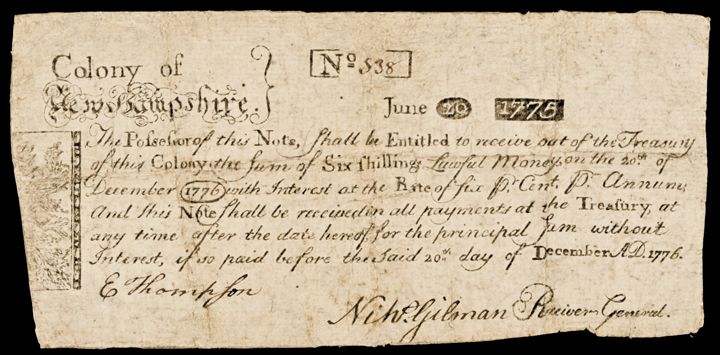 Colony of
New Hampshire.
No 538
June 20 1775
The Possessor of this Note, shall be Entitled to receive out of the Treasury
of this Colony, the Sum of Six shillings Lawful Money, on the 20th of
December 1776 with Interest at the Rate of six Pr. Cent, Pr. Annum;
And this Note shall be received in all payments at the Treasury, at
any time after the date hereof for the principal Sum without
Interest, if so paid before the said 20th day of December A.D. 1776.
E Thompson
Nichs. Gilman Receiver General.